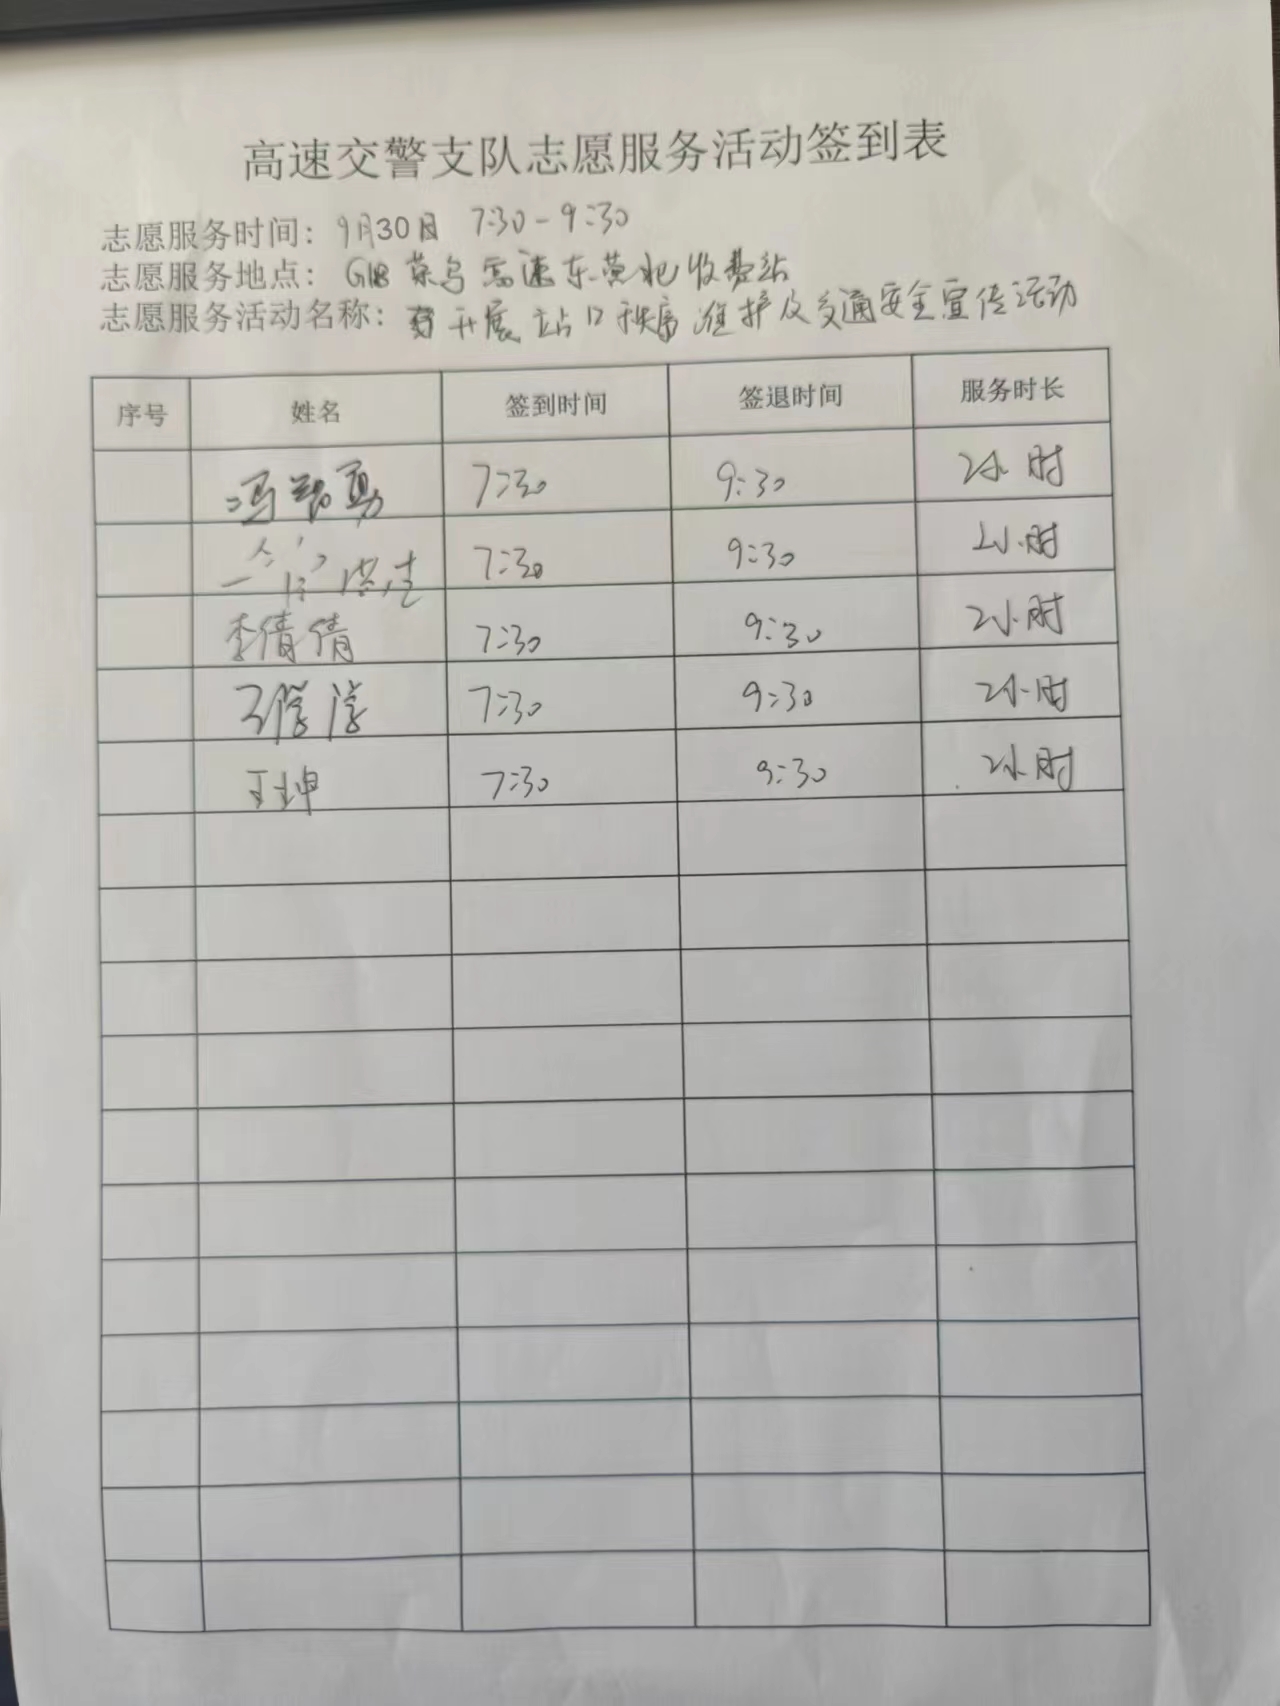 高速交警支队志愿服务活动签到表
志愿服务时间：9月30日 7:30-9:30
志愿服务地点：G18 荣乌高速东黄 收费站
志愿服务活动名称：开展站口秩序维护及交通安全宣传活动
序号 姓名 签到时间 签退时间 服务时长
冯 勇 7:30 9:30 2小时
7:30 9:30 2小时
李倩倩 7:30 9:30 2小时
7:30 9:30 2小时
王坤 7:30 9:30 2小时